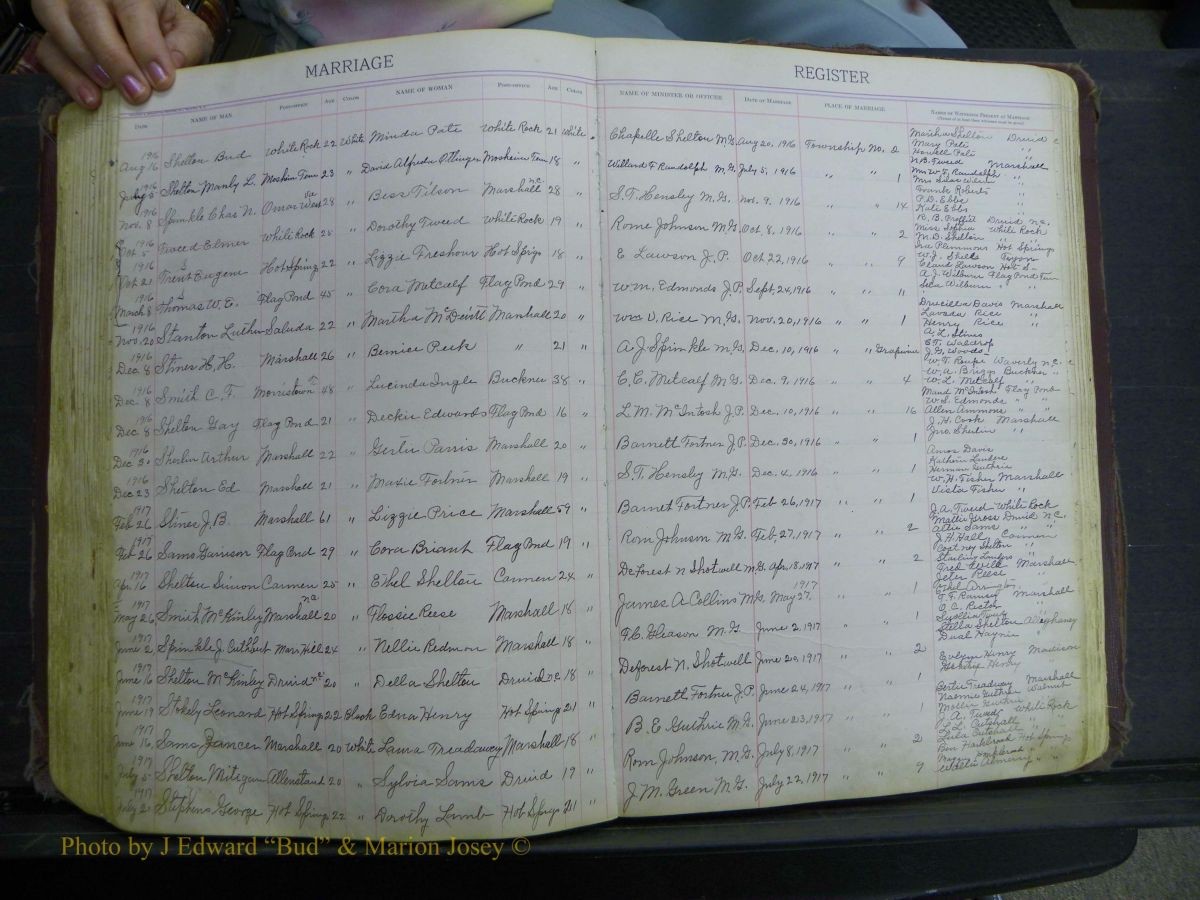 MARRIAGE
REGISTER
DATE NAME OF MAN POST-OFFICE AGE COLOR NAME OF WOMAN POST-OFFICE AGE COLOR NAME OF MINISTER OR OFFICER DATE OF MARRIAGE PLACE OF MARRIAGE NAMES OF WITNESSES PRESENT AT MARRIAGE
1916 Aug 16 Shelton Bud White Rock 22 White Minda Pate White Rock 21 White
July 3 Shelton Manly L. 23 " 18 "
1916 Nov. 8 Sprinkle Chas N. 28 " Bess Tilson Marshall N.C. 28 "
1916 Oct 5 Tweed Elmer White Rock 25 " Dorothy Tweed White Rock 19 "
1916 Oct 21 Trent Eugene Hot Springs 22 " Lizzie Freshour Hot Sprigs 18 "
1916 March 8 Thomas W. E. Flag Pond 45 " Cora Metcalf Flag Pond 29 "
1916 Nov. 20 Stanton Luther Saluda 22 " Martha McDevitt Marshall 20 "
1916 Dec 8 Stines H. H. Marshall 26 " Bernice Peek " 21 "
1916 Dec. 8 Smith C. F. Morristown 48 " Lucinda Ingle Buckner 38 "
1916 Dec 8 Shelton Gay Flag Pond 21 " Deckie Edwards Flag Pond 16 "
1916 Dec 30 Shelin Arthur Marshall 22 " Gertie Parris Marshall 20 "
1916 Dec 23 Shelton Ed Marshall 21 " Maxie Fortner Marshall 19 "
1917 Feb 26 Stines J. B. Marshall 61 " Lizzie Price Marshall 59 "
1917 Feb 26 Sams Garrison Flag Pond 29 " Cora Briant Flag Pond 19 "
1917 Apr. 16 Shelton Simon Carmen 25 " Ethel Shelton Carmen 24 "
1917 May 26 Smith McKinley Marshall 20 " Flossie Reese Marshall 18 "
1917 June 2 Sprinkle J. Cuthbert Mars Hill 24 " Nellie Redmon Marshall 18 "
1917 June 16 Shelton McKinley Druid N.C. 20 " Della Shelton Druid N.C. 18 "
1917 June 19 Stokely Leonard Hot Spring 22 Black Edna Henry Hot Spring 21 "
1917 June 16, Sams Marshall 20 White Laura Treadaway Marshall 18 "
1917 July 5 Shelton Mitigan Allenstand 20 " Sylvia Sams Druid 19 "
1917 July 21 Stephens George Hot Springs 22 " Dorothy Lamb Hot Springs 21 "
Chapelle Shelton M.G. Aug 20, 1916 Township No. 2
Willard F Randolph M.G. July 5, 1916 " " 1
S. T. Hensley M.G. Nov. 9, 1916 " " 14
Rome Johnson M.G. Oct 8, 1916 " " 2
E Lawson J.P. Oct 22, 1916 " " 9
Wm. Edmonds J.P. Sept. 24, 1916 " " 11
Wm V. Rice M.G. Nov. 20, 1916 " " 1
A. J. Sprinkle M.G. Dec. 10, 1916 " " Grapevine
C. C. Metcalf M.G. Dec. 9, 1916 " " 4
L. M. McIntosh J.P. Dec. 10, 1916 " " 16
Barnett Fortner J.P. Dec. 30, 1916 " " 1
S. T. Hensley M.G. Dec. 4, 1916 " " 1
Barnet Fortner J.P. Feb 26, 1917 " " 1
Rom Johnson M.G. Feb. 27, 1917 " " 2
DeForest N Shotwell M.G. Apr. 18, 1917 " " 2
James A Collins M.G. May 27, 1917 " " 1
F. C. Gleason M.G. June 2, 1917 " " 1
Deforest N. Shotwell June 20, 1917 " " 2
Barnett Fortner J.P. June 24, 1917 " " 1
B. E. Guthrie M.G. June 23, 1917 " " 1
Rom Johnson, M.G. July 8, 1917 " " 2
J. M. Green M.G. July 22, 1917 " " 9
Martha Shelton Druid
Mary Pate "
Howell Pate "
N. B. Tweed Marshall
Mrs W. F. Randolph "
Frank Roberts "
P. D. Ebbs "
Kate Ebbs "
Miss Sophia White Rock
M. D. Shelton "
Ira Plemmons Hot Springs
W. J. Shelts Tryon
A. J. Wilburn Flag Pond Tenn
Druscilla Davis Marshall
Lavada Rice "
Henry Rice "
A. L. Stines
E. T. Waldrop
J. G. Woods
W. T. Roupe Waverly N.C.
W. A. Briggs Buckner "
W. L. Metcalf "
Maud McIntosh Flag Pond
W. S. Edmonds " "
Allen Ammons " "
J. H. Cook Marshall
Jno. Shelin "
Amos Davis
Herman Guthrie
W. H. Fisher Marshall
Vista Fisher "
J. A. Tweed White Rock
Mattie Gross Druid N.C.
Allie Sams " "
J. H. Hall Carmen
Fred Wild Marshall
Jeter Reese "
Ethel Arrington
T. F. Ramsey Marshall
O. C. Rector "
Stella Shelton Allegheney
Dual Haynie "
Evelyn Henry Madison
George Henry
Bertie Treadway Marshall
Nannie Guthrie Walnut
Mollie Guthrie "
J. A. Tweed White Rock
L. L. Cutshall "
Lula Cutshall "
Photo by J Edward “Bud” & Marion Josey ©